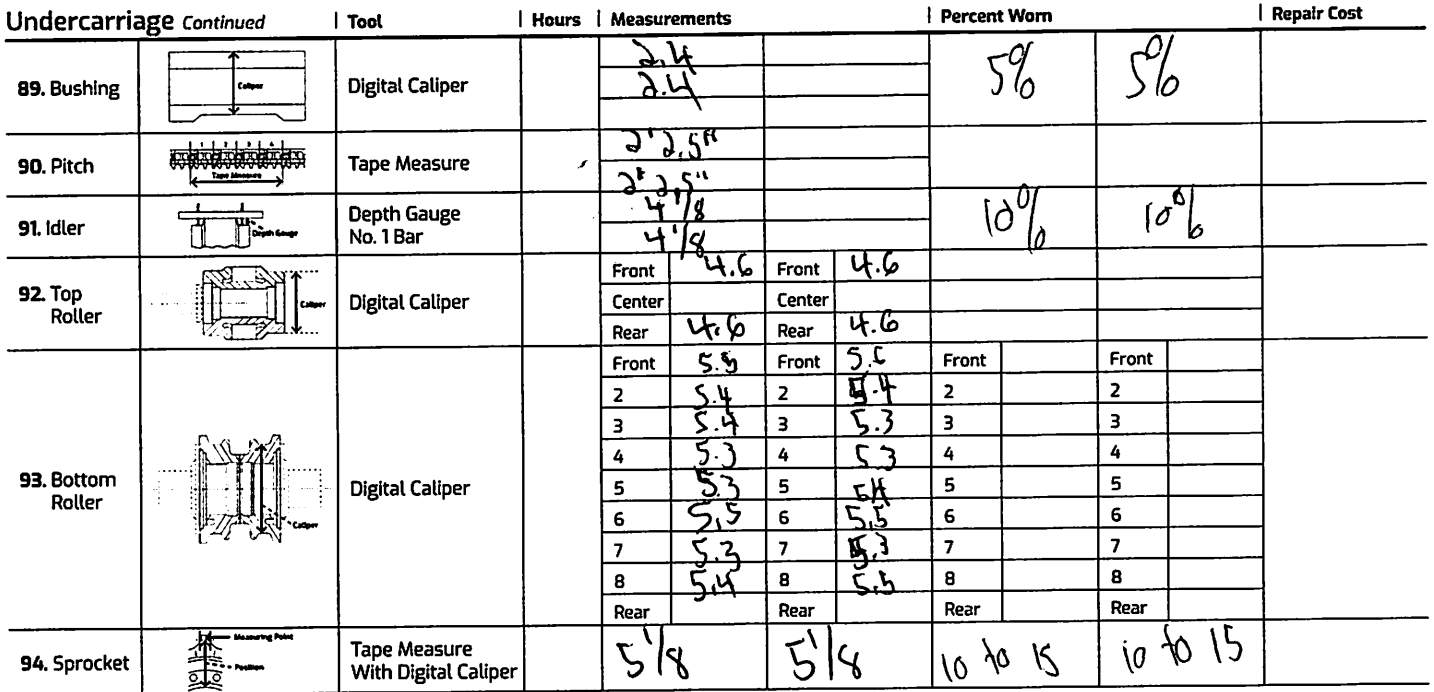 Undercarriage Continued | Tool | Hours | Measurements | Percent Worn | Repair Cost
89. Bushing Caliper Digital Caliper 2.4 5% 5%
2.4
90. Pitch 1 2 3 4 Tape Measure Tape Measure 2' 2.5"
2" 2,5"
91. Idler Depth Gauge Depth Gauge No. 1 Bar 4 1/8 10% 10%
4 1/8
92. Top Roller Caliper Digital Caliper Front 4.6 Front 4.6
Center Center
Rear 4.6 Rear 4.6
93. Bottom Roller Caliper Digital Caliper Front Front Front Front
2 5.4 2 5.4 2 2
3 5.4 3 5.3 3 3
4 5.3 4 5.3 4 4
5 5.3 5 5 5
6 5,5 6 5,5 6 6
7 5.3 7 5.3 7 7
8 5,4 8 5.5 8 8
Rear Rear Rear Rear
94. Sprocket Measuring Point Position Tape Measure With Digital Caliper 5 1/8 5 1/8 10 to 15 10 to 15